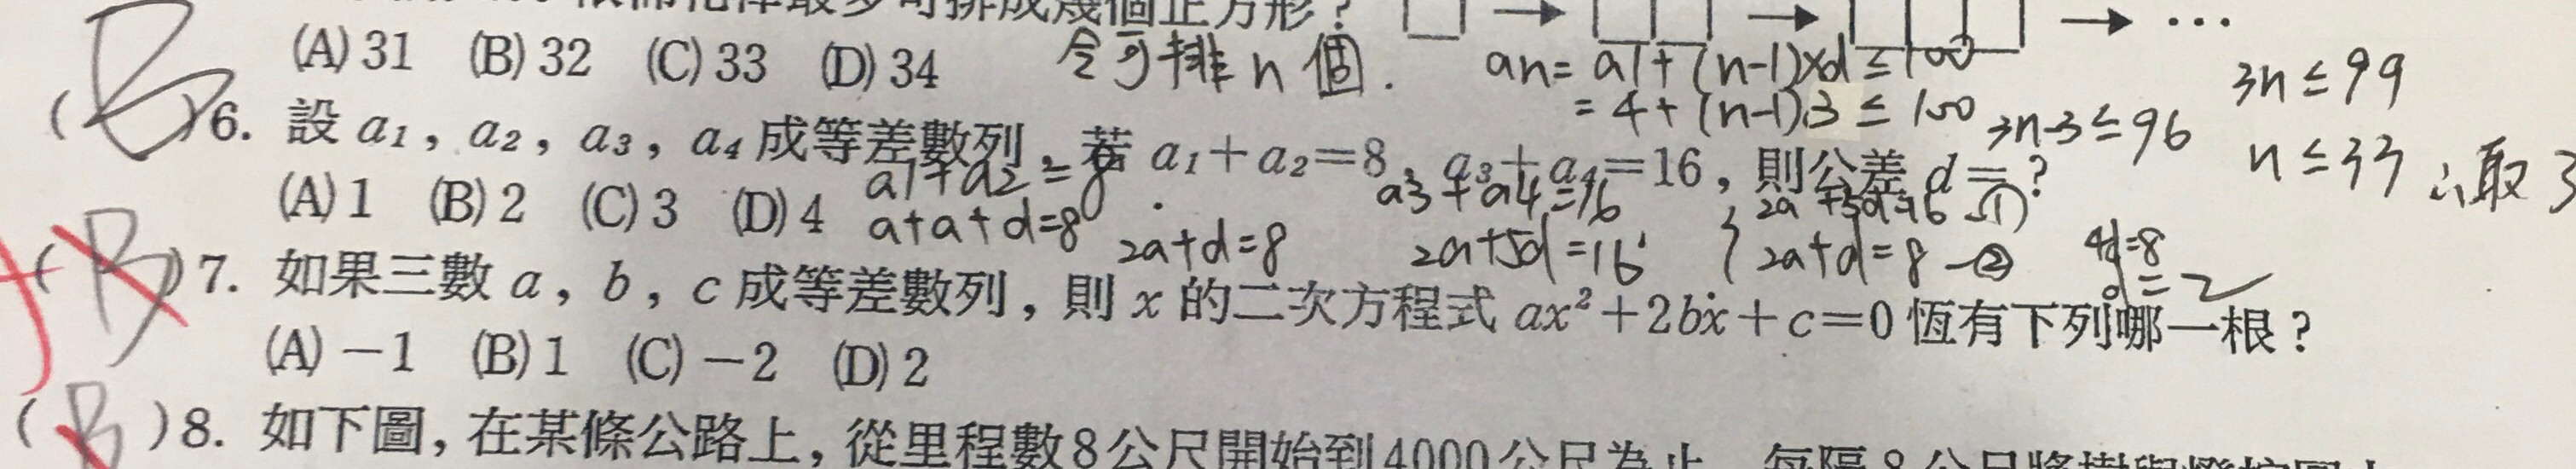 最多可排成幾個正方形？
(A) 31 (B) 32 (C) 33 (D) 34
令可排 n 個.
an = a1 + (n-1)×d ≤ 100
= 4 + (n-1)3 ≤ 100
3n-3 ≤ 96
3n ≤ 99
n ≤ 33
∴取3
(B) 6. 設 a₁，a₂，a₃，a₄ 成等差數列，若 a₁+a₂=8，a₃+a₄=16，則公差 d=？
(A) 1 (B) 2 (C) 3 (D) 4
a1+a2=8
a+a+d=8
2a+d=8
a3+a4=16
2a+5d=16
{ 2a+5d=16 -①
2a+d=8 -②
4d=8
d=2
(B) 7. 如果三數 a，b，c 成等差數列，則 x 的二次方程式 ax²+2bx+c=0 恆有下列哪一根？
(A) −1 (B) 1 (C) −2 (D) 2
(B) 8. 如下圖，在某條公路上，從里程數8公尺開始到4000公尺為止，每隔8公尺將樹與燈